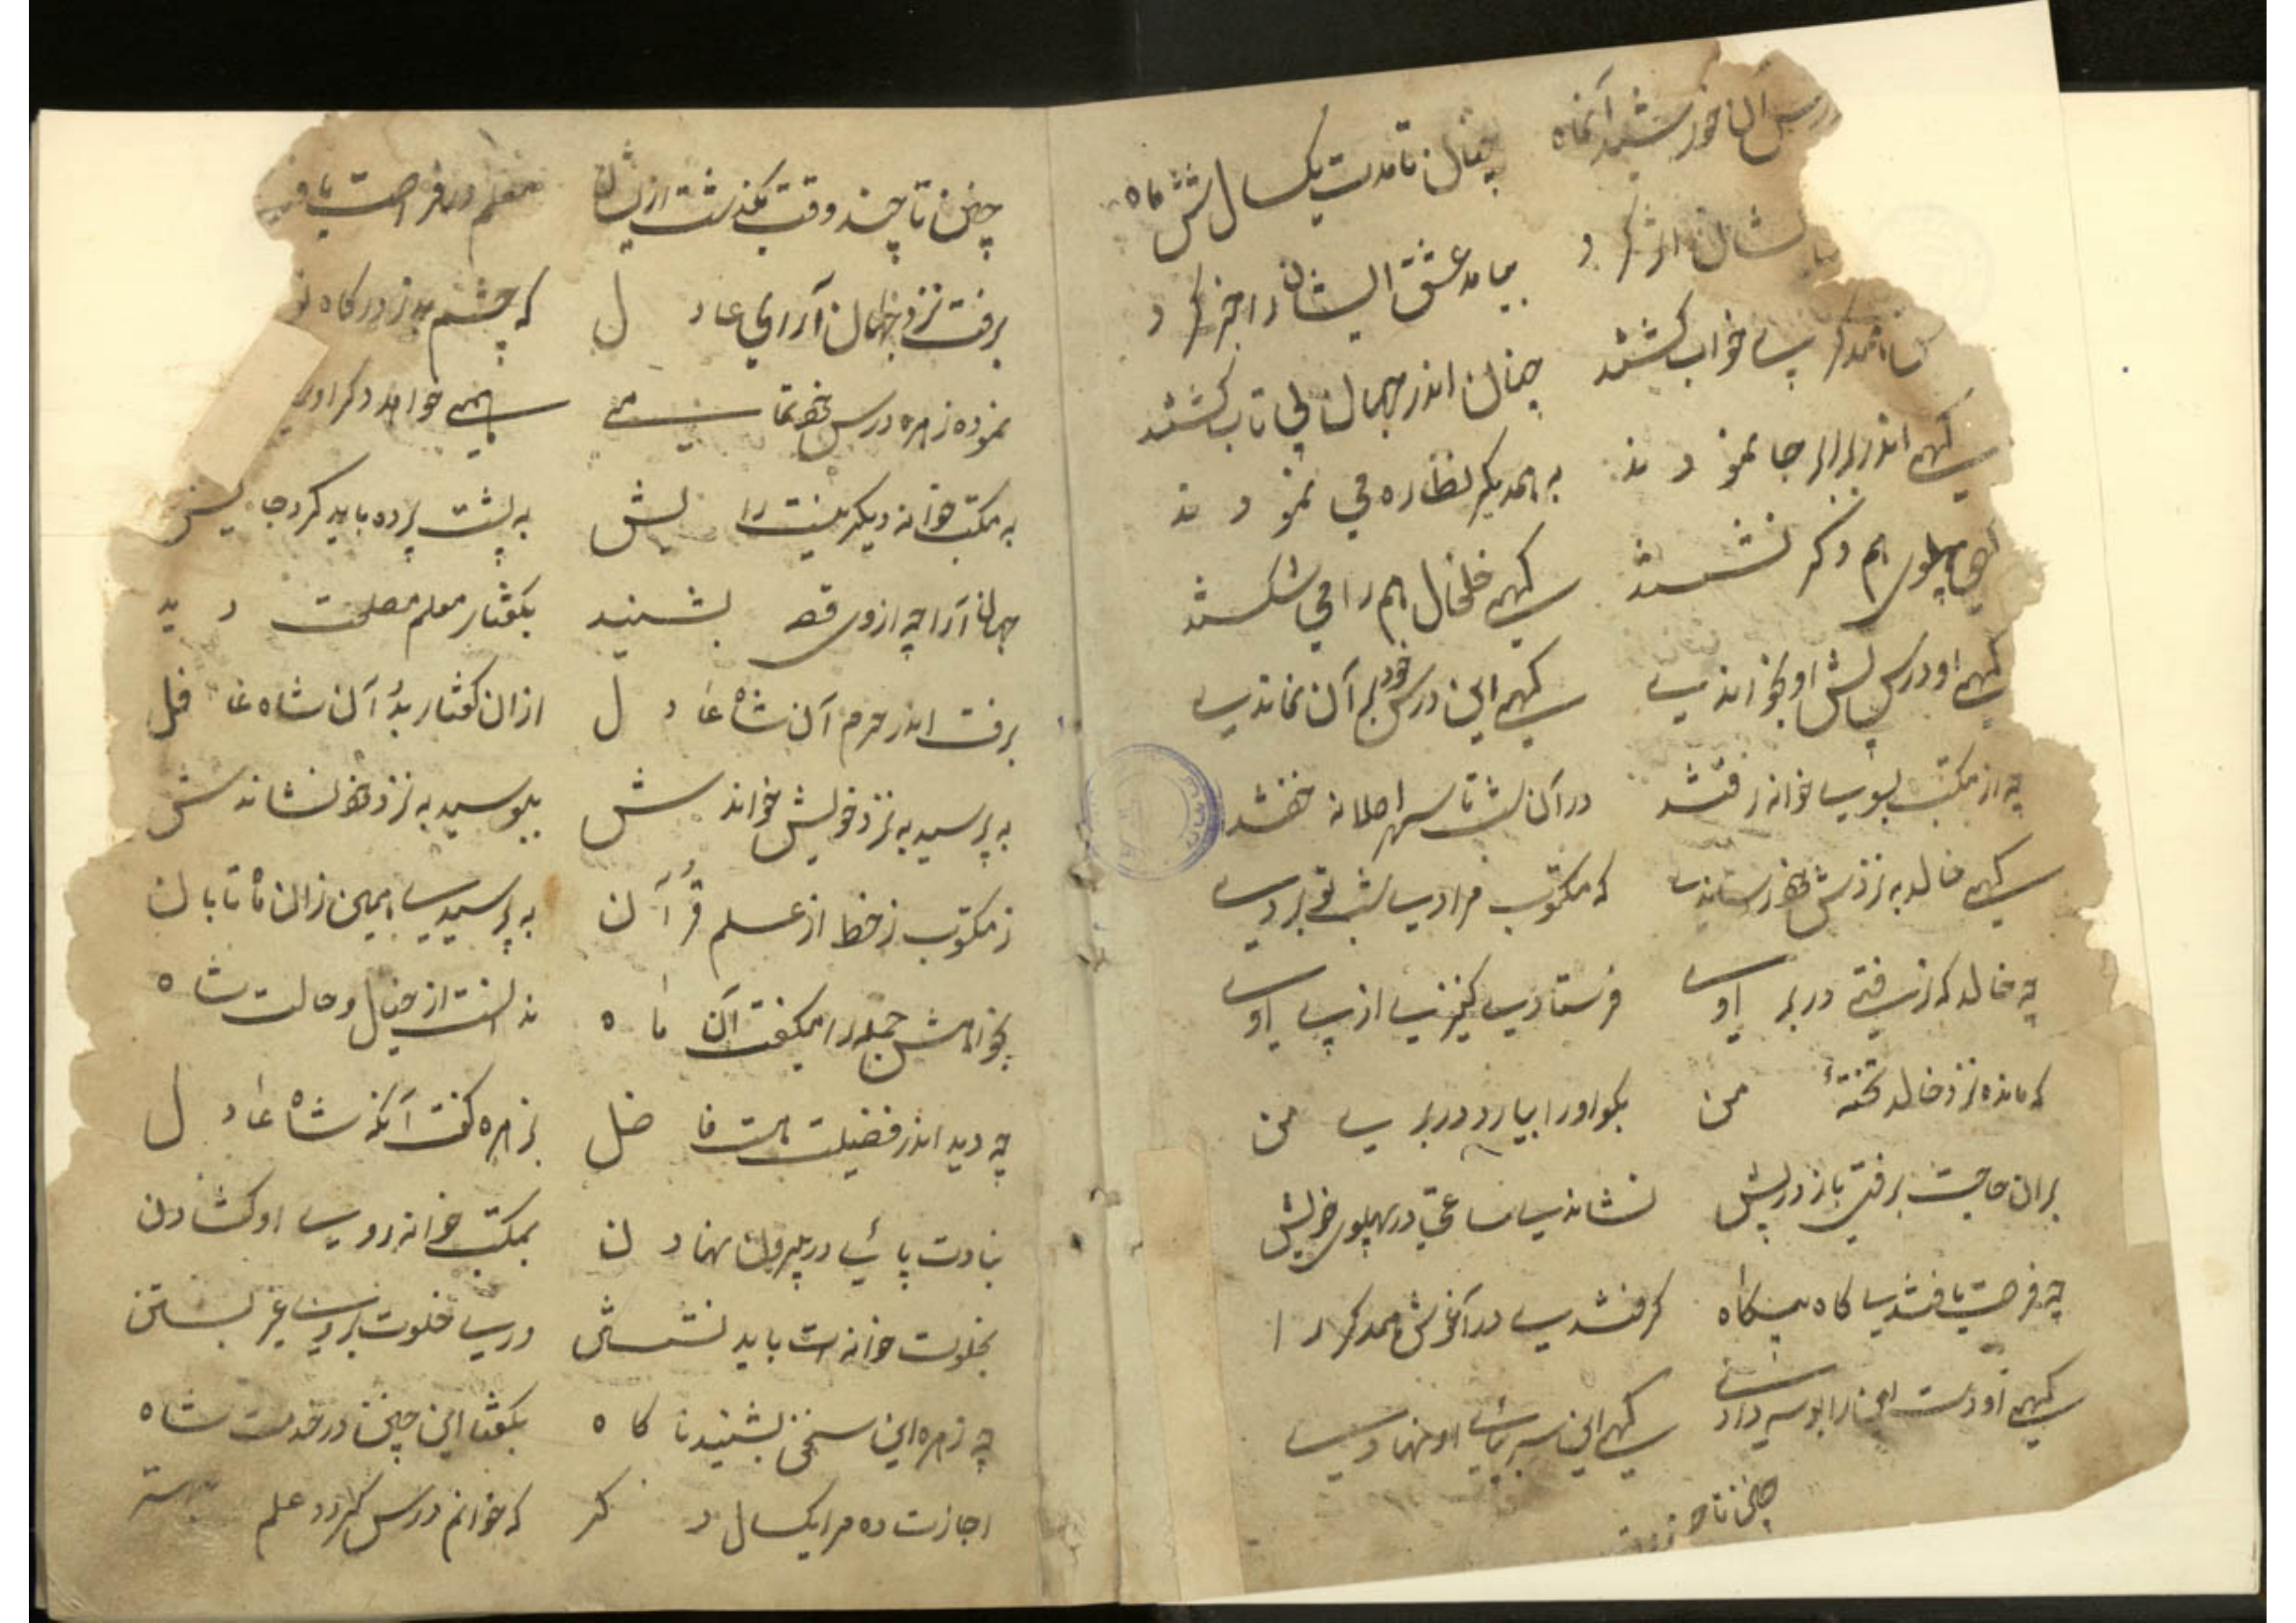 درس آن خورشید آنماه چنان تا مدت یکسال شش ماه
ایشان اثر کرد بیامد عشق ایشان را خبر کرد
همدگر بی خواب گشتند چنان اندر جهان بی تاب گشتند
گهی اندر برابر جا نمودند به همدیگر نظاره می نمودند
پهلوی هم دگر نشستند گهی خلخال هم را می شکستند
گهی او درس پیش او بخواندی گهی این درس خود بر آن نماندی
چه از مکتب بسوی خانه رفتند در آن شب تا سحر اصلا نه خفتند
گهی خالد به نزدش که مکتوب مرادی شب تو بردی
چه خالد که نرفتی در بر اوی فرستادی کنیزی از پی اوی
که مانده نزد خالد تخته من بگو او را بیارد در بری من
بران حاجت برفتی باز در پیش نشاندی ساعتی در پهلوی خویش
چه فرصت یافتندی گاه بیگاه گرفتندی در آغوش همدگر را
گهی او دست این را بوسه دادی گهی این سر بپای او نهادی
چنین تا چند
چنین تا چند وقت بگذشت ازیشان معلم در فراصت
برفت نزد جهان آرای عادل که چشم بد ز درگاه
نموده زهره درس خود تمامی همی خواهد دگر
به مکتب خانه دیگر نیست رایش به پشت پرده باید کرد جایش
جهان آرا چه از وی قصه بشنید بگفتار معلم مصلحت دید
برفت اندر حرم آن شاه عادل ازان گفتار بد آن شاه غافل
به پرسید به نزد خویش خواندش ببوسید به نزد خود نشاندش
ز مکتوب ز خط از علم قرآن به پرسیدی همین زان ماه تابان
بخواهش جمله را میگفت آن ماه ندانست از خیال و حالت شاه
چه دید اندر فضیلت هست فاضل بزهره گفت آنگه شاه عادل
نبادت پائی در بیرون نهادن بمکتب خانه روی او گشادن
بخلوت خانه ات باید نشستن دری خلوت بروی غیر بستن
چه زهره این سخن بشنید ناگاه بگفتا این چنین در خدمت شاه
اجازت ده مرا یکسال دگر که خوانم درس گیرد علم